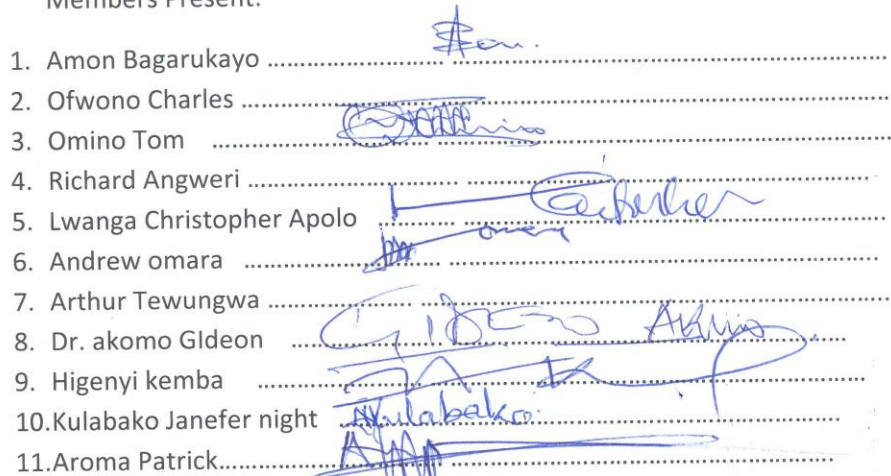 Members Present:
1. Amon Bagarukayo ........................
2. Ofwono Charles ........................
3. Omino Tom ........................
4. Richard Angweri ........................
5. Lwanga Christopher Apolo ........................
6. Andrew omara ........................
7. Arthur Tewungwa ........................
8. Dr. akomo GIdeon ........................
9. Higenyi kemba ........................
10.Kulabako Janefer night Akulabako
11.Aroma Patrick........................